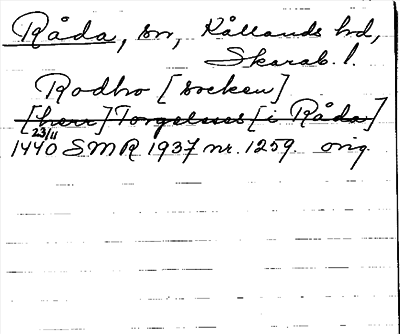 Råda, sn, Kållands hd,
Skarab. l.
Rodho [socken]
[herr] Torgelsus [i Råda]
23/11
1440 SMR 1937 nr. 1259 orig.